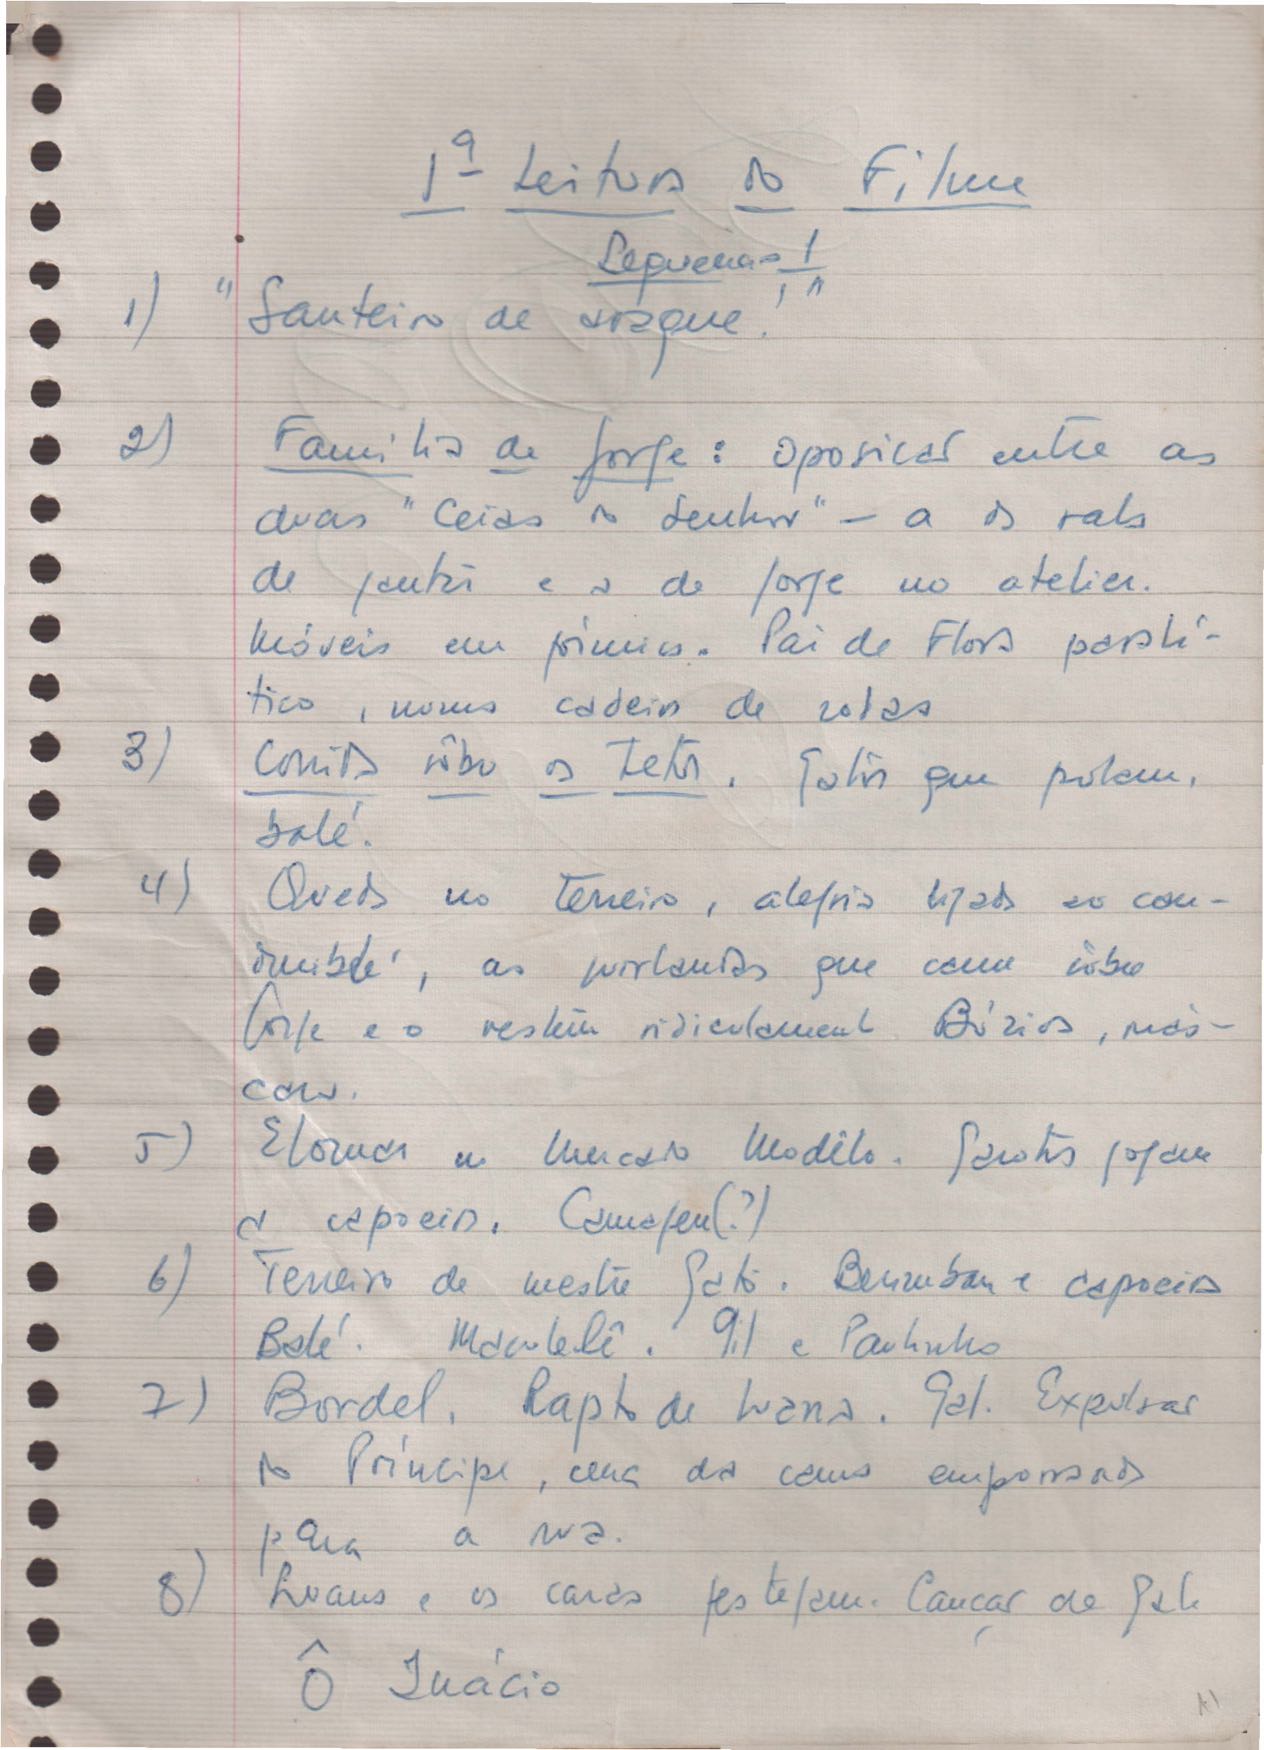 1ª Leitura do Filme
Sequencia 1
1) "Santeiro de araque!"
2) Familia de Jorge: oposição entre as
duas "Ceias do Senhor" – a da sala
de jantar e a de Jorge no atelier.
Móveis em pânico. Pai de Flora paralí-
tico, numa cadeira de rodas
3) Corrida sôbre os tetos. Gatos que pulam.
balé.
4) Queda no terreiro, alegria ligada ao can-
domblé, as que caem sôbre
Jorge e o vestem ridiculamente. Búzios, más-
caras.
5) no Mercado Modêlo. Garotos jogam
a capoeira. Camafeu(?)
6) Terreiro de mestre Gato. Berimbau e capoeira
Balé. Maculelê. Gil e Paulinho
7) Bordel. Rapto de Luana. Gal. Expulsão
do Príncipe, cena da cama empurrada
para a rua.
8) Luana e os caras festejam. Canção de Gal
Ô Inácio